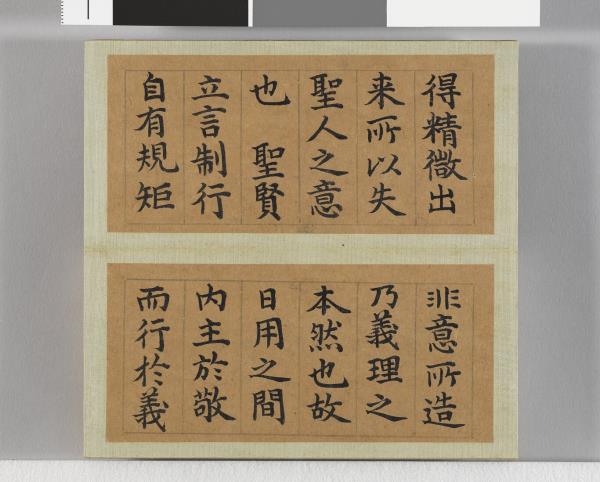 得精微出
来所以失
聖人之意
也 聖賢
立言制行
自有規矩
非意所造
乃義理之
本然也故
日用之間
内主於敬
而行於義